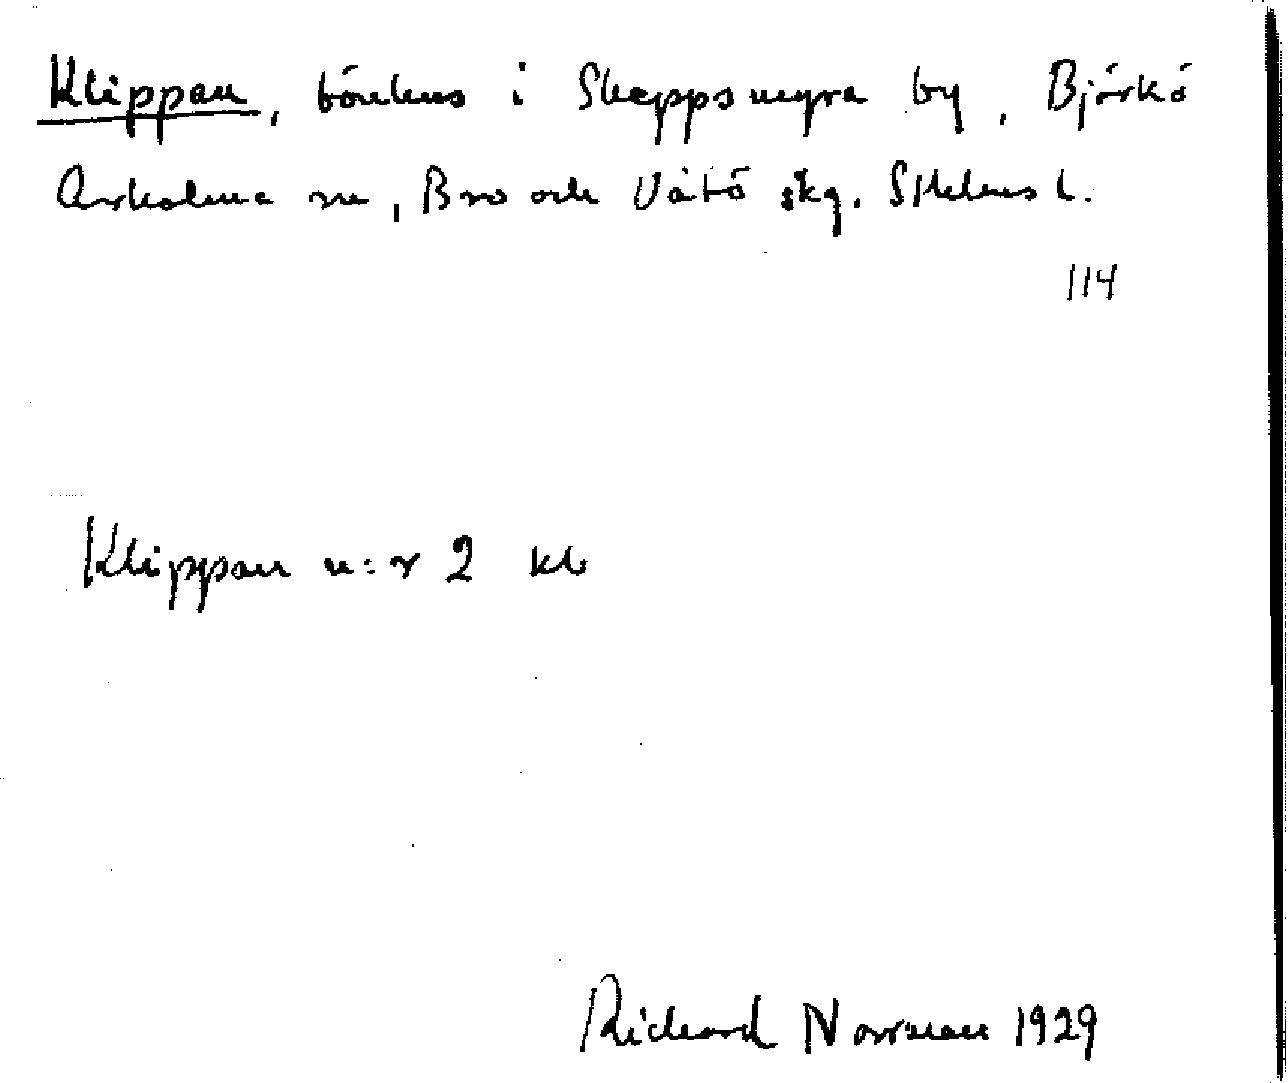 Klippan, bönhus i Skeppsmyra by, Björkö
Arholma sn, Bro och Vätö skg. Sthlms l.
114
Klippan n:r 2 kl
Richard Norrman 1929